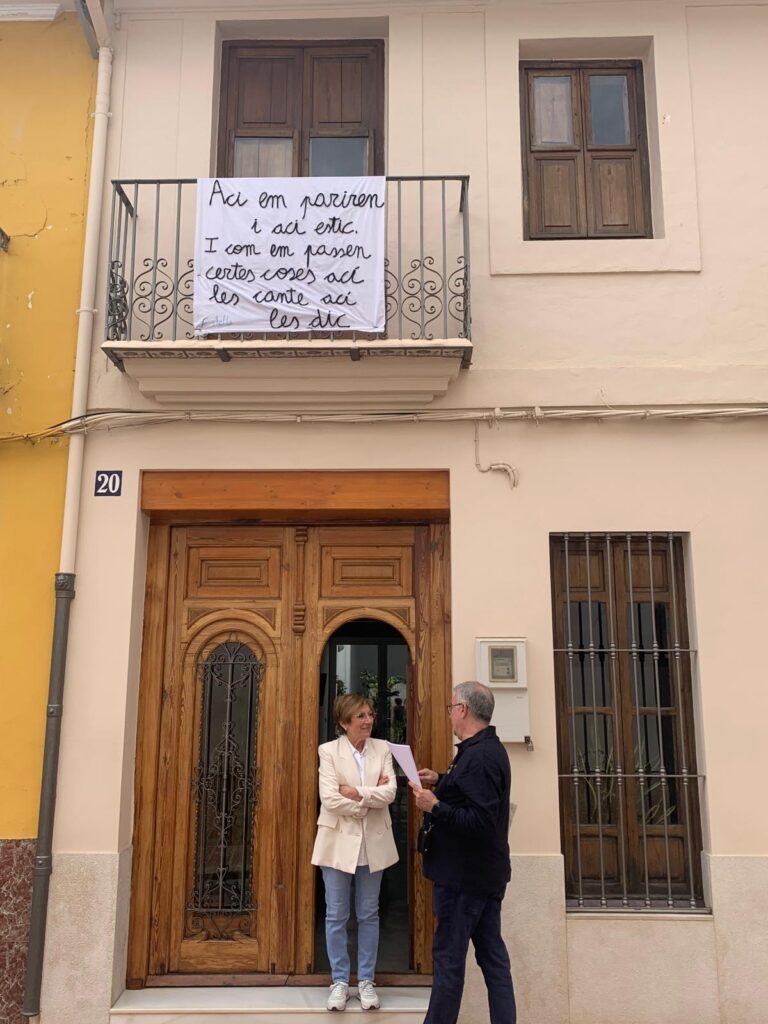 Aci em pariren
i aci estic.
I com em passen
certes coses ací
les cante aci
les dic
20